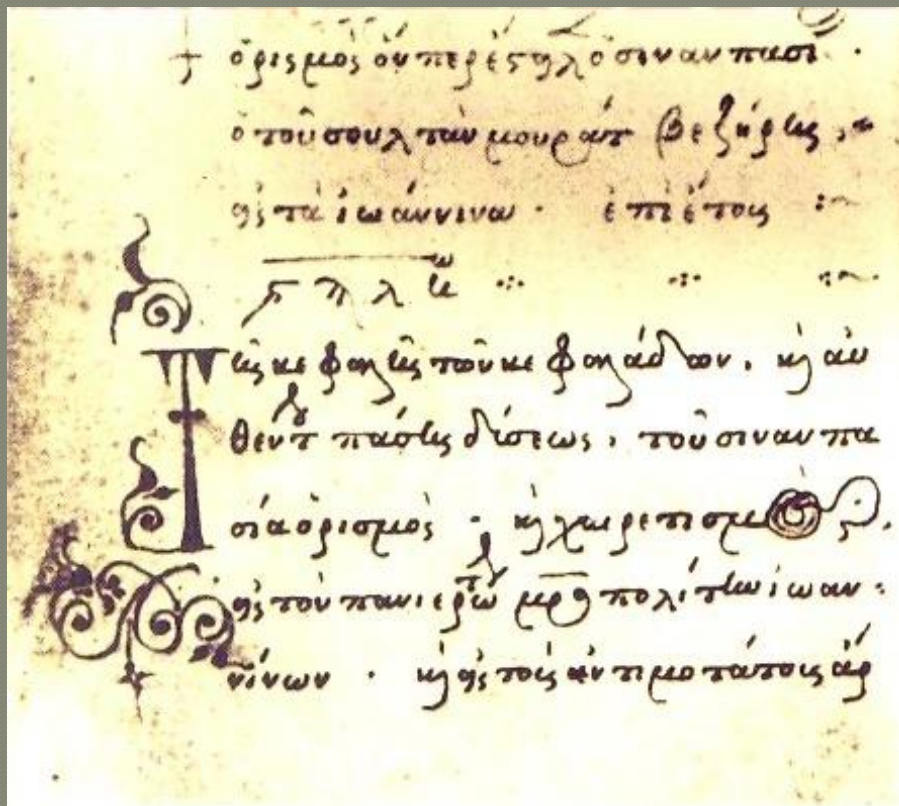 + ὁρισμὸς ὅνπερ ἔστηλὁ σινὰν πασὶ ·
ὁ τοῦ σουλτὰν μουρὰτ βεζήρης
εἰς τὰ ἰωάννινα · ἐπὶ ἔτοις
τῆς κεφαλῆς τῶν κεφαλάδων, κὴ αὐ
θέντ πάσης δίσεως, τοῦ σινὰν πα
σία ὁρισμὸς · κὴ χωρετισμὸς,
εἰς τὸν πανιερώτ μρο πολίτην ἰωαν
νίνων · κὴ εἰς τοὶς ἐντιμοτάτοις ἄρ